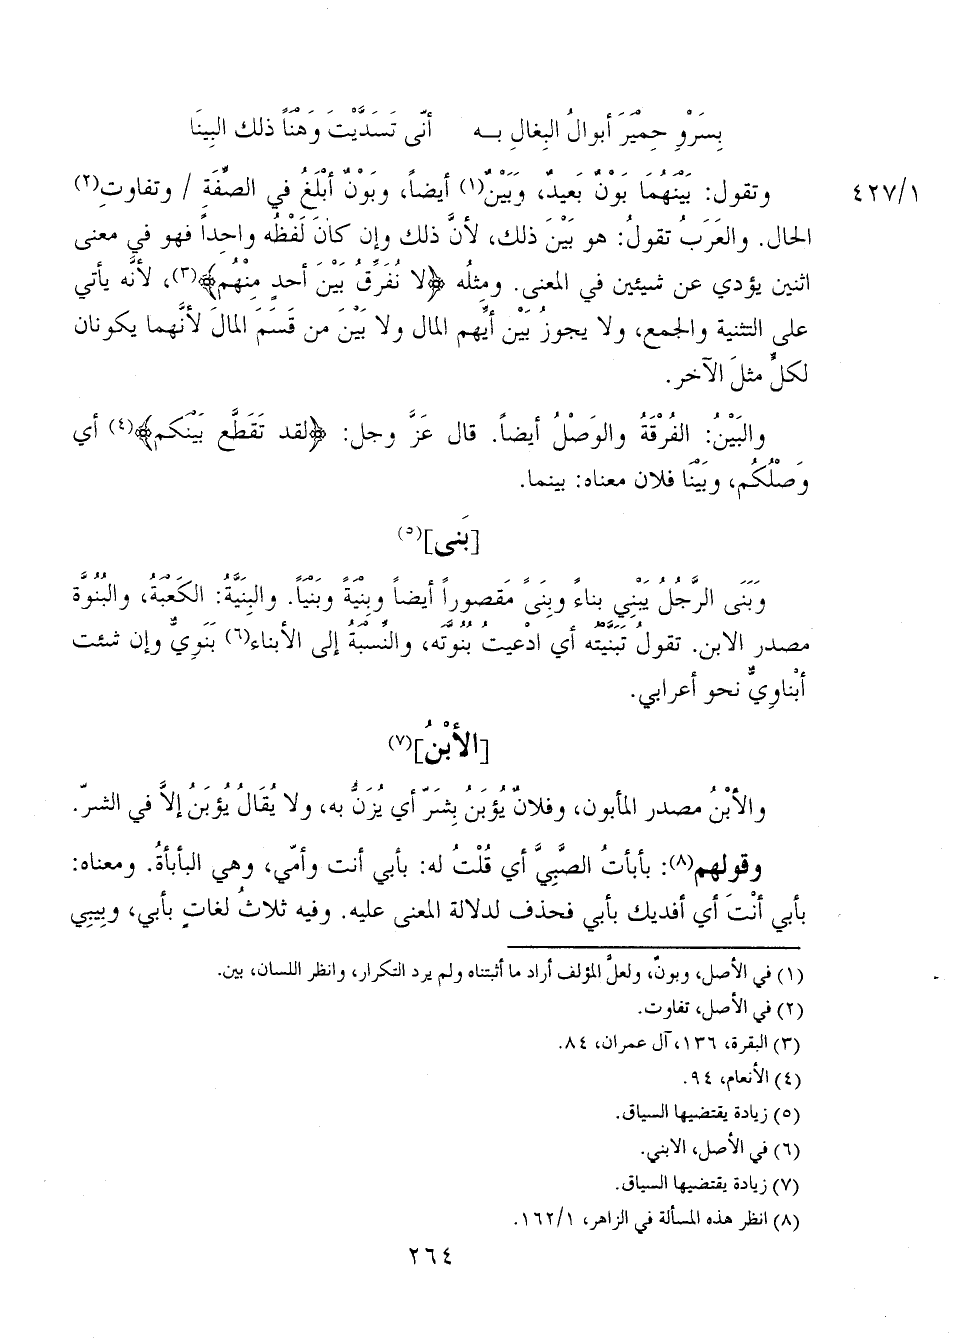 بِسَرْوِ حِمْيَرَ أبوالُ البغالِ بــه    أنّى تَسَدَّيْتَ وَهْناً ذلك البِينَا
٤٢٧/١ وتقول: بَيْنَهُمَا بَوْنٌ بَعيدٌ، وَبَيْنٌ(١) أيضاً، وبَوْنٌ أَبْلَغُ في الصِّفَةِ / وتفاوتِ(٢)
الحال. والعَرَبُ تقولُ: هو بَيْنَ ذلك، لأنَّ ذلك وإن كانَ لَفْظُه واحِداً فهو في معنى
اثنين يؤدي عن شيئين في المعنى. ومِثلُه ﴿لا نُفَرِّقُ بَيْنَ أحدٍ مِنْهُم﴾(٣)، لأنَّه يأتي
على التثنية والجمع، ولا يجوزُ بَيْن أيِّهم المال ولا بَيْنَ من قَسَمَ المالَ لأنَّهما يكونان
لكلٍّ مثلَ الآخر.
والبَيْنُ: الفُرْقَةُ والوَصْلُ أيضاً. قال عَزَّ وجل: ﴿لقد تَقَطَّع بَيْنَكم﴾(٤) أي
وَصْلُكُم، وبَيْنَا فلان معناه: بينما.
[بَنى](٥)
وَبَنَى الرَّجُلُ يَبْنِي بناءً وبِنَىً مَقصوراً أيضاً وبِنْيَةً وبَنْيَاً. والبَنِيَّةُ: الكَعْبَةُ، والبُنُوَّة
مصدر الابن. تقولُ تَبَنَّيْتُه أي ادعيتُ بُنُوَّتَه، والنِّسْبَةُ إلى الأبناء(٦) بَنَوِيٌّ وإن شئت
أبْناوِيٌّ نحو أعرابي.
[الأَبْنُ](٧)
والأَبْنُ مصدر المأبون، وفلانٌ يُؤبَنُ بِشَرّ أي يُزَنُّ به، ولا يُقَالُ يُؤبَنُ إلاَّ في الشرّ.
وقولهم(٨): بأبأت الصَّبِيَّ أي قُلْتُ له: بأبي أنت وأمّي، وهي البأبأةُ. ومعناه:
بأبي أنْتَ أي أفديك بأبي فحذف لدلالة المعنى عليه. وفيه ثلاثُ لغاتٍ بأبي، وبِيبِي
(١) في الأصل، وبونٌ، ولعلَّ المؤلف أراد ما أثبتناه ولم يرد التكرار، وانظر اللسان، بين.
(٢) في الأصل، تفاوت.
(٣) البقرة، ١٣٦، آل عمران، ٨٤.
(٤) الأنعام، ٩٤.
(٥) زيادة يقتضيها السياق.
(٦) في الأصل، الابني.
(٧) زيادة يقتضيها السياق.
(٨) انظر هذه المسألة في الزاهر، ١/١٦٢.
٢٦٤